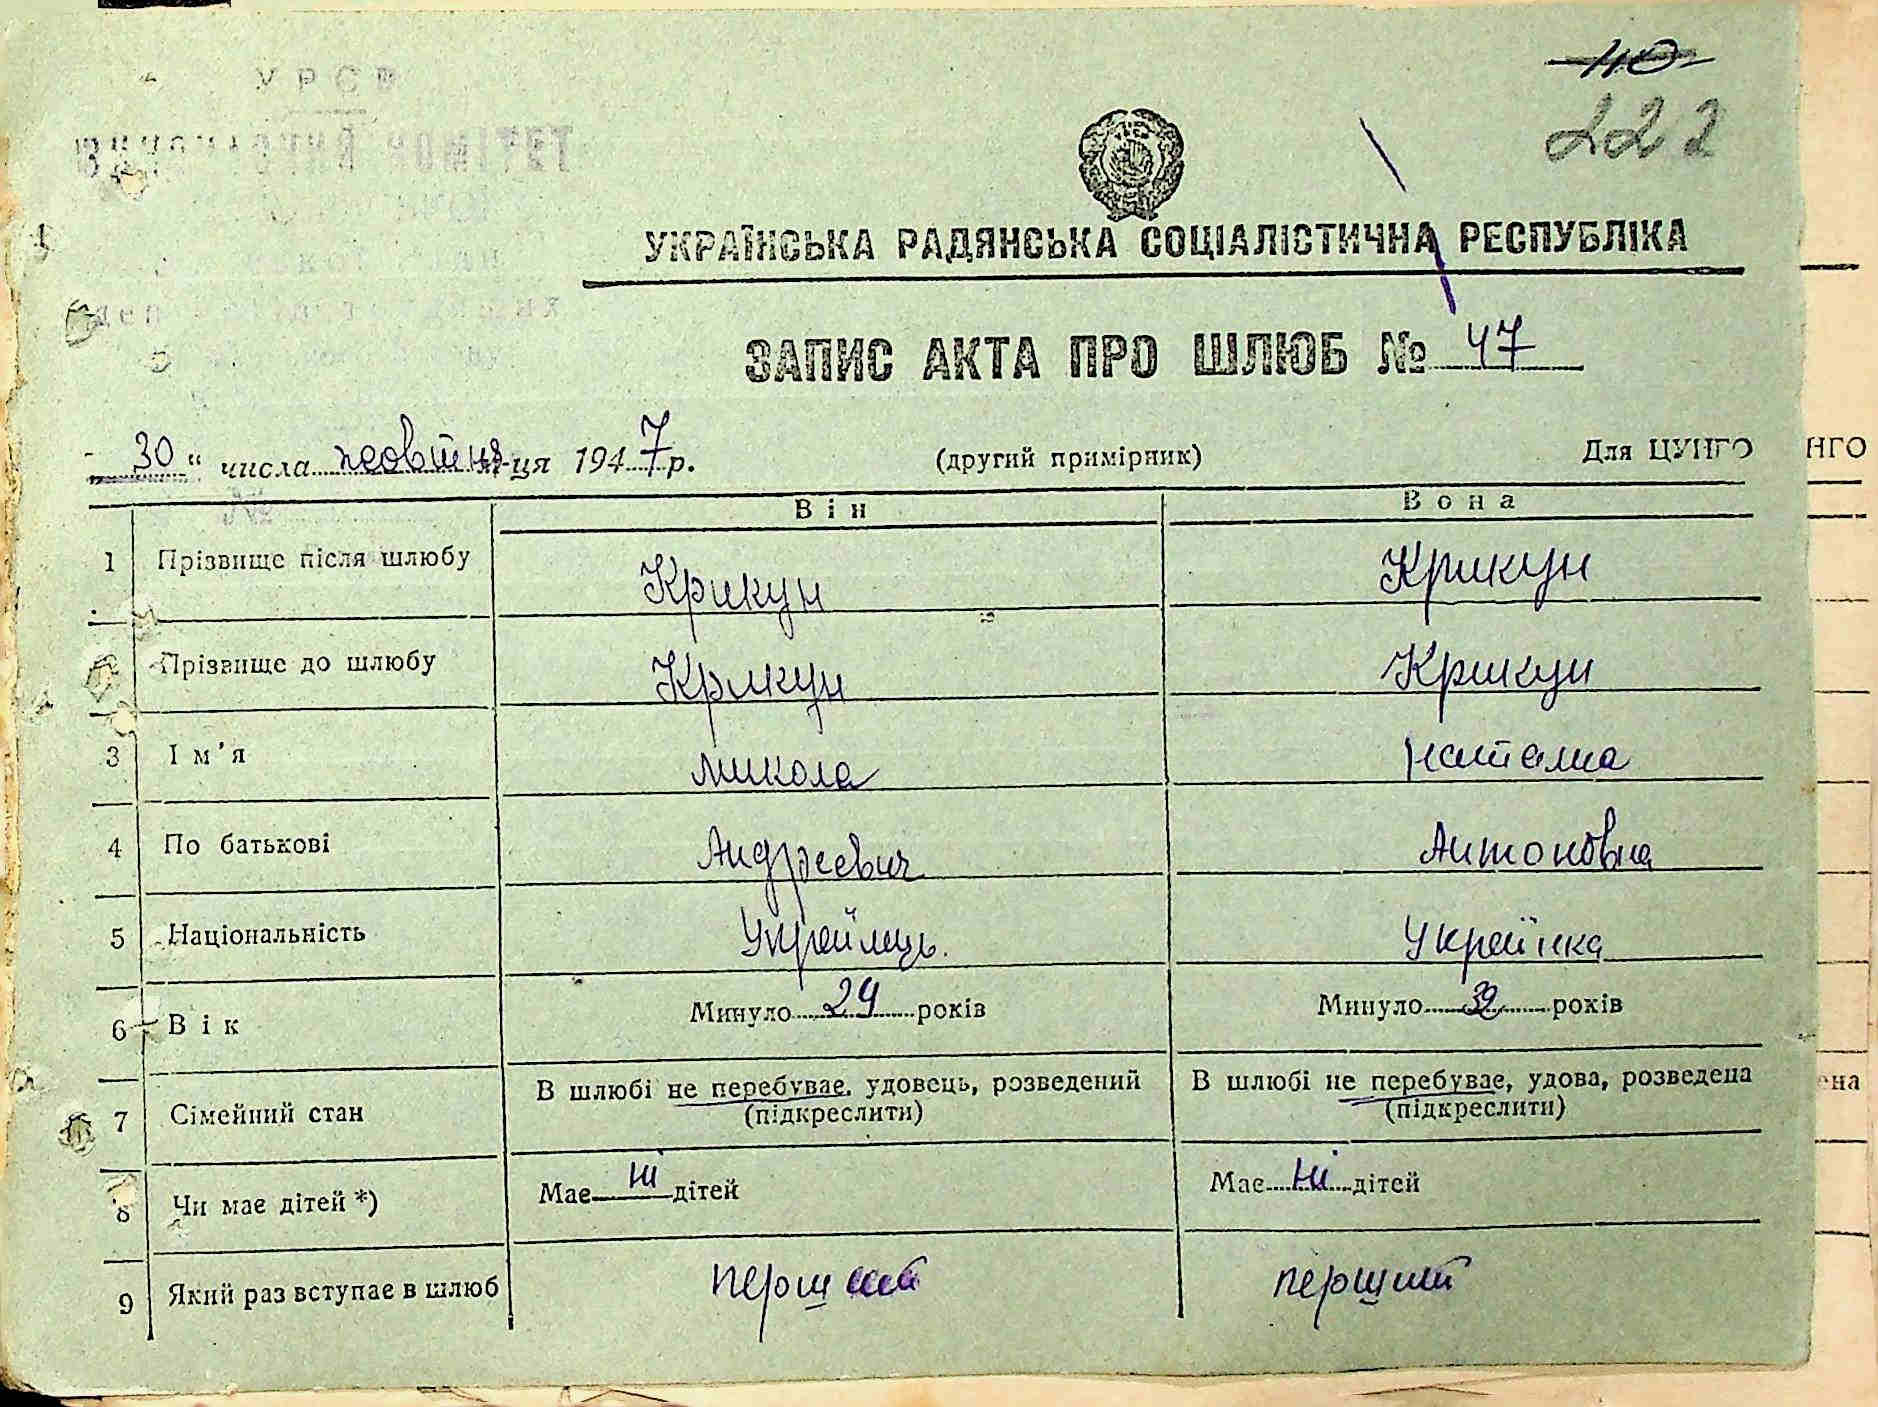 110
222
УКРАЇНСЬКА РАДЯНСЬКА СОЦІАЛІСТИЧНА РЕСПУБЛІКА
ЗАПИС АКТА ПРО ШЛЮБ № 47
30 " числа жовтня м-ця 1947 р. (другий примірник) Для ЦУНГО
НГО
Він Вона
1 Прізвище після шлюбу Крикун Крикун
2 Прізвище до шлюбу Крикун Крикун
3 Ім'я Микола Наталиа
4 По батькові Андреевич Антоновна
5 Національність Украйнець. Українка
6 Вік Минуло 29 років Минуло 32 років
7 Сімейний стан В шлюбі не перебуває, удовець, розведений (підкреслити) В шлюбі не перебуває, удова, розведена (підкреслити)
ена
8 Чи має дітей *) Має ні дітей Має ні дітей
9 Який раз вступає в шлюб перший перший